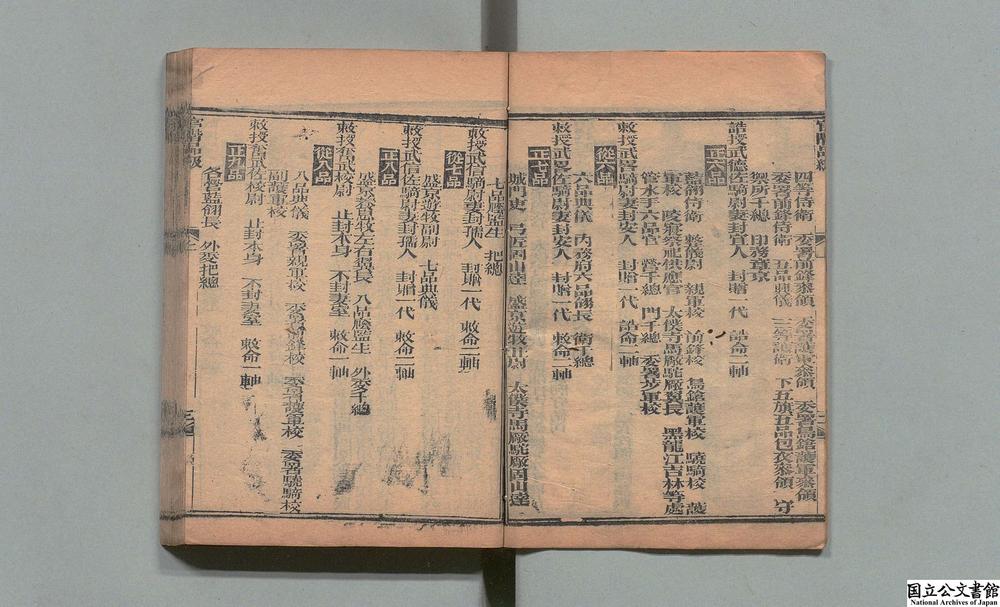 官階品級
四等侍衛 委署前鋒參領 委署護軍參領 委署鳥鎗護軍參領
委署前鋒侍衛 五品典儀 三等護衛 下五旗五品包衣參領 守
禦所千總 印務章京
正六品
誥授武德佐騎尉妻封宜人 封贈一代 誥命二軸
藍翎侍衛 整儀尉 親軍校 前鋒校 鳥鎗護軍校 驍騎校 護
軍校 陵寢祭祀供應官 太僕寺馬廠駝廠翼長 黑龍江吉林等處
管水手六品官 營千總 門千總 委署步軍校
從六品
敕授武略騎尉妻封安人 封贈一代 誥命二軸
六品典儀 內務府六品翎長 衛千總
正七品
敕授武略佐騎尉妻封安人 封贈一代 敕命二軸
城門吏 弓匠固山達 盛京遊牧正尉 太僕寺馬廠駝廠固山達
七品廕監生 把總
從七品
敕授武信騎尉妻封孺人 封贈一代 敕命二軸
盛京遊牧副尉 七品典儀
正八品
敕授武信佐騎尉妻封孺人 封贈一代 敕命二軸
盛京養息牧左右翼長 八品廕監生 外委千總
從八品
敕授奮武校尉 止封本身 不封妻室 敕命一軸
八品典儀 委署親軍校 委署前鋒校 委署護軍校 委署驍騎校
副護軍校
正九品
敕授奮武佐校尉 止封本身 不封妻室 敕命一軸
各營藍翎長 外委把總
官階品級
国立公文書館
National Archives of Japan